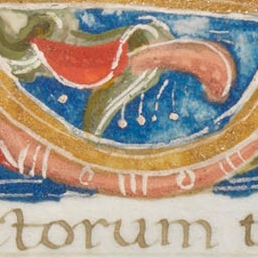 ctorum t